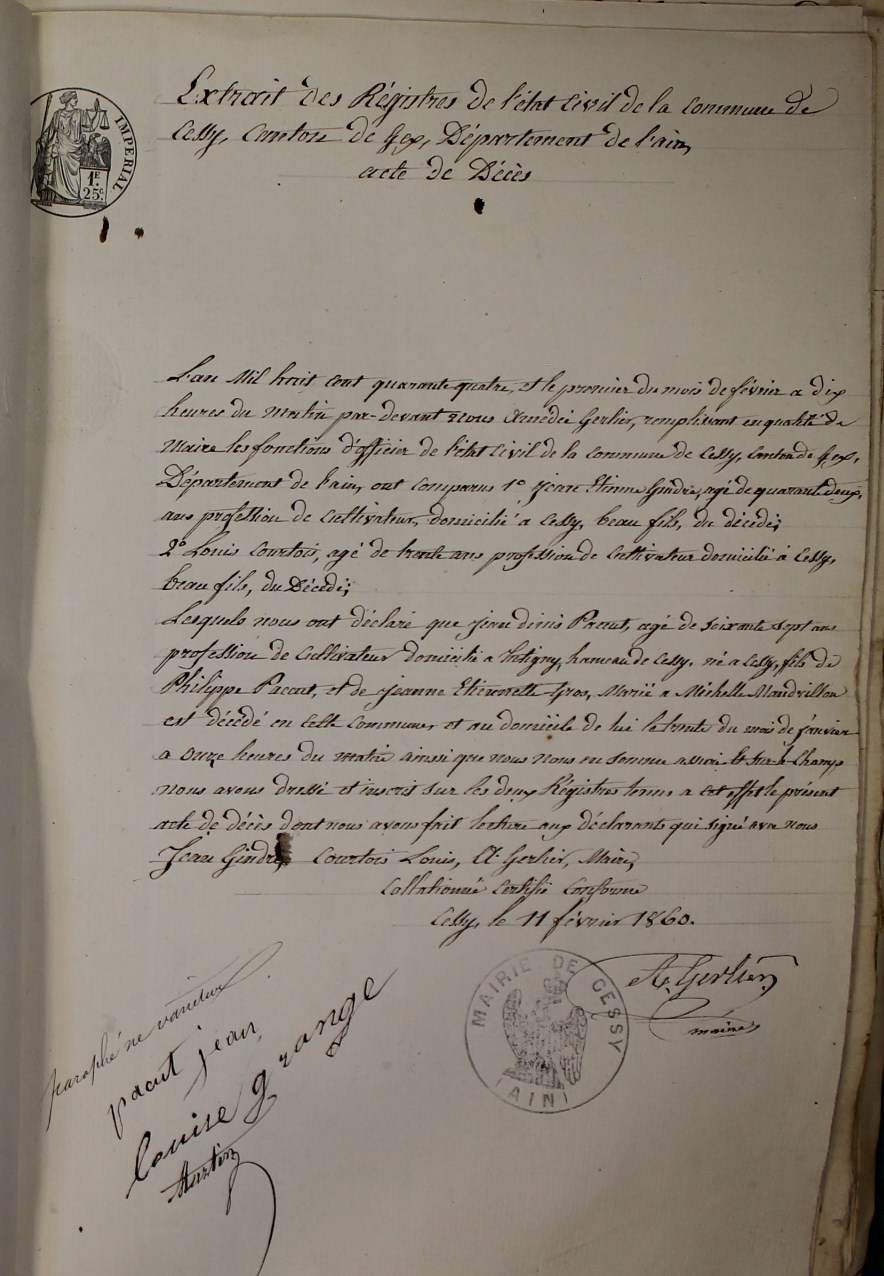 IMPERIAL
1F.
25c.
Extrait des Régistres de l'état civil de la commune de
Cessy, Canton de Gex, Département de l'ain,
acte de Décès
L'an Mil huit cent quarante quatre, et le premier du mois de février a dix
heures du Matin par-devant nous Amédée Gerlier, remplissant en qualité de
Maire les fonctions d'officier de l'état civil de la commune de Cessy, Canton de Gex,
Département de l'ain, ont comparus 1º Jean Etienne Gindre, agé de quarante deux,
ans profession de cultivateur, domicilié a Cessy, beau fils, du décédé;
2º Louis Courtois, agé de trente ans profession de cultivateur domicilié à Cessy,
beau fils, du Décédé;
Lesquels nous ont déclaré que Jean dinis Pacout, agé de soixante sept ans
profession de cultivateur domicilié a hameau de Cessy, né a Cessy, fils de
Philippe Pacout, et de Jeanne Gros, Marié a Michelle Mandrillon
est décédé en cette commune, et au domicile de lui le trente du mois de janvier
a onze heures du matin ainsi que nous nous en somme assuré et sur le Champ
nous avons dressé et inscrit sur les deux Régistres tenus a cet effet le présent
acte de décès dont nous avons fait lecture aux déclarants qui signé avec nous
Jean Gindre, Courtois Louis, A. Gerlier, Maire,
Collationné certifié conforme
Cessy, le 11 février 1860.
A. Gerlier
maire
MAIRIE DE CESSY
(AIN)
paraphé ne varietur
pacout jean
louise grange
Martin